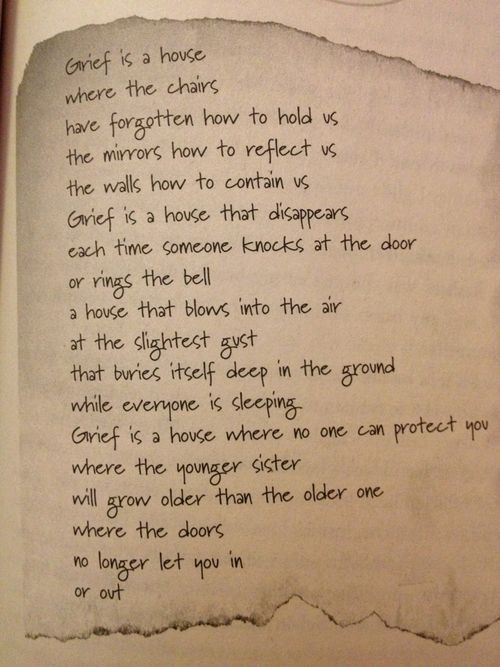 Grief is a house
where the chairs
have forgotten how to hold us
the mirrors how to reflect us
the walls how to contain us
Grief is a house that disappears
each time someone knocks at the door
or rings the bell
a house that blows into the air
at the slightest gust
that buries itself deep in the ground
while everyone is sleeping
Grief is a house where no one can protect you
where the younger sister
will grow older than the older one
where the doors
no longer let you in
or out